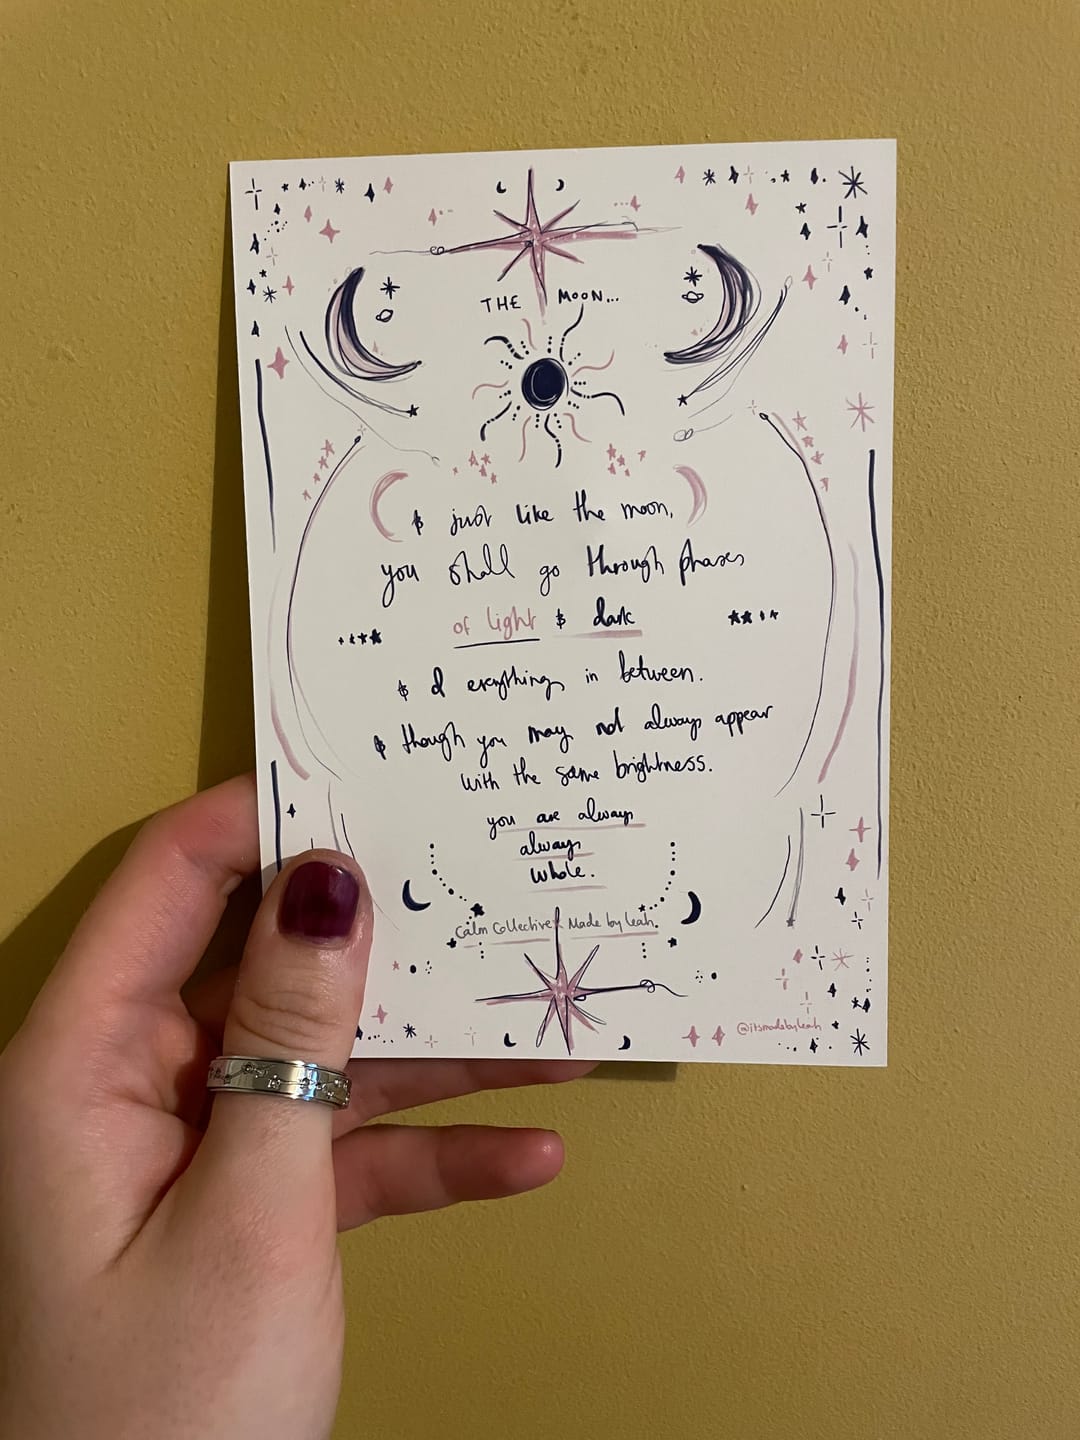 THE MOON...
& just like the moon,
you shall go through phases
of light & dark
& of everything in between.
& though you may not always appear
with the same brightness.
you are always
always
whole.
Calm Collective x Made by Leah.
@itsmadebyleah